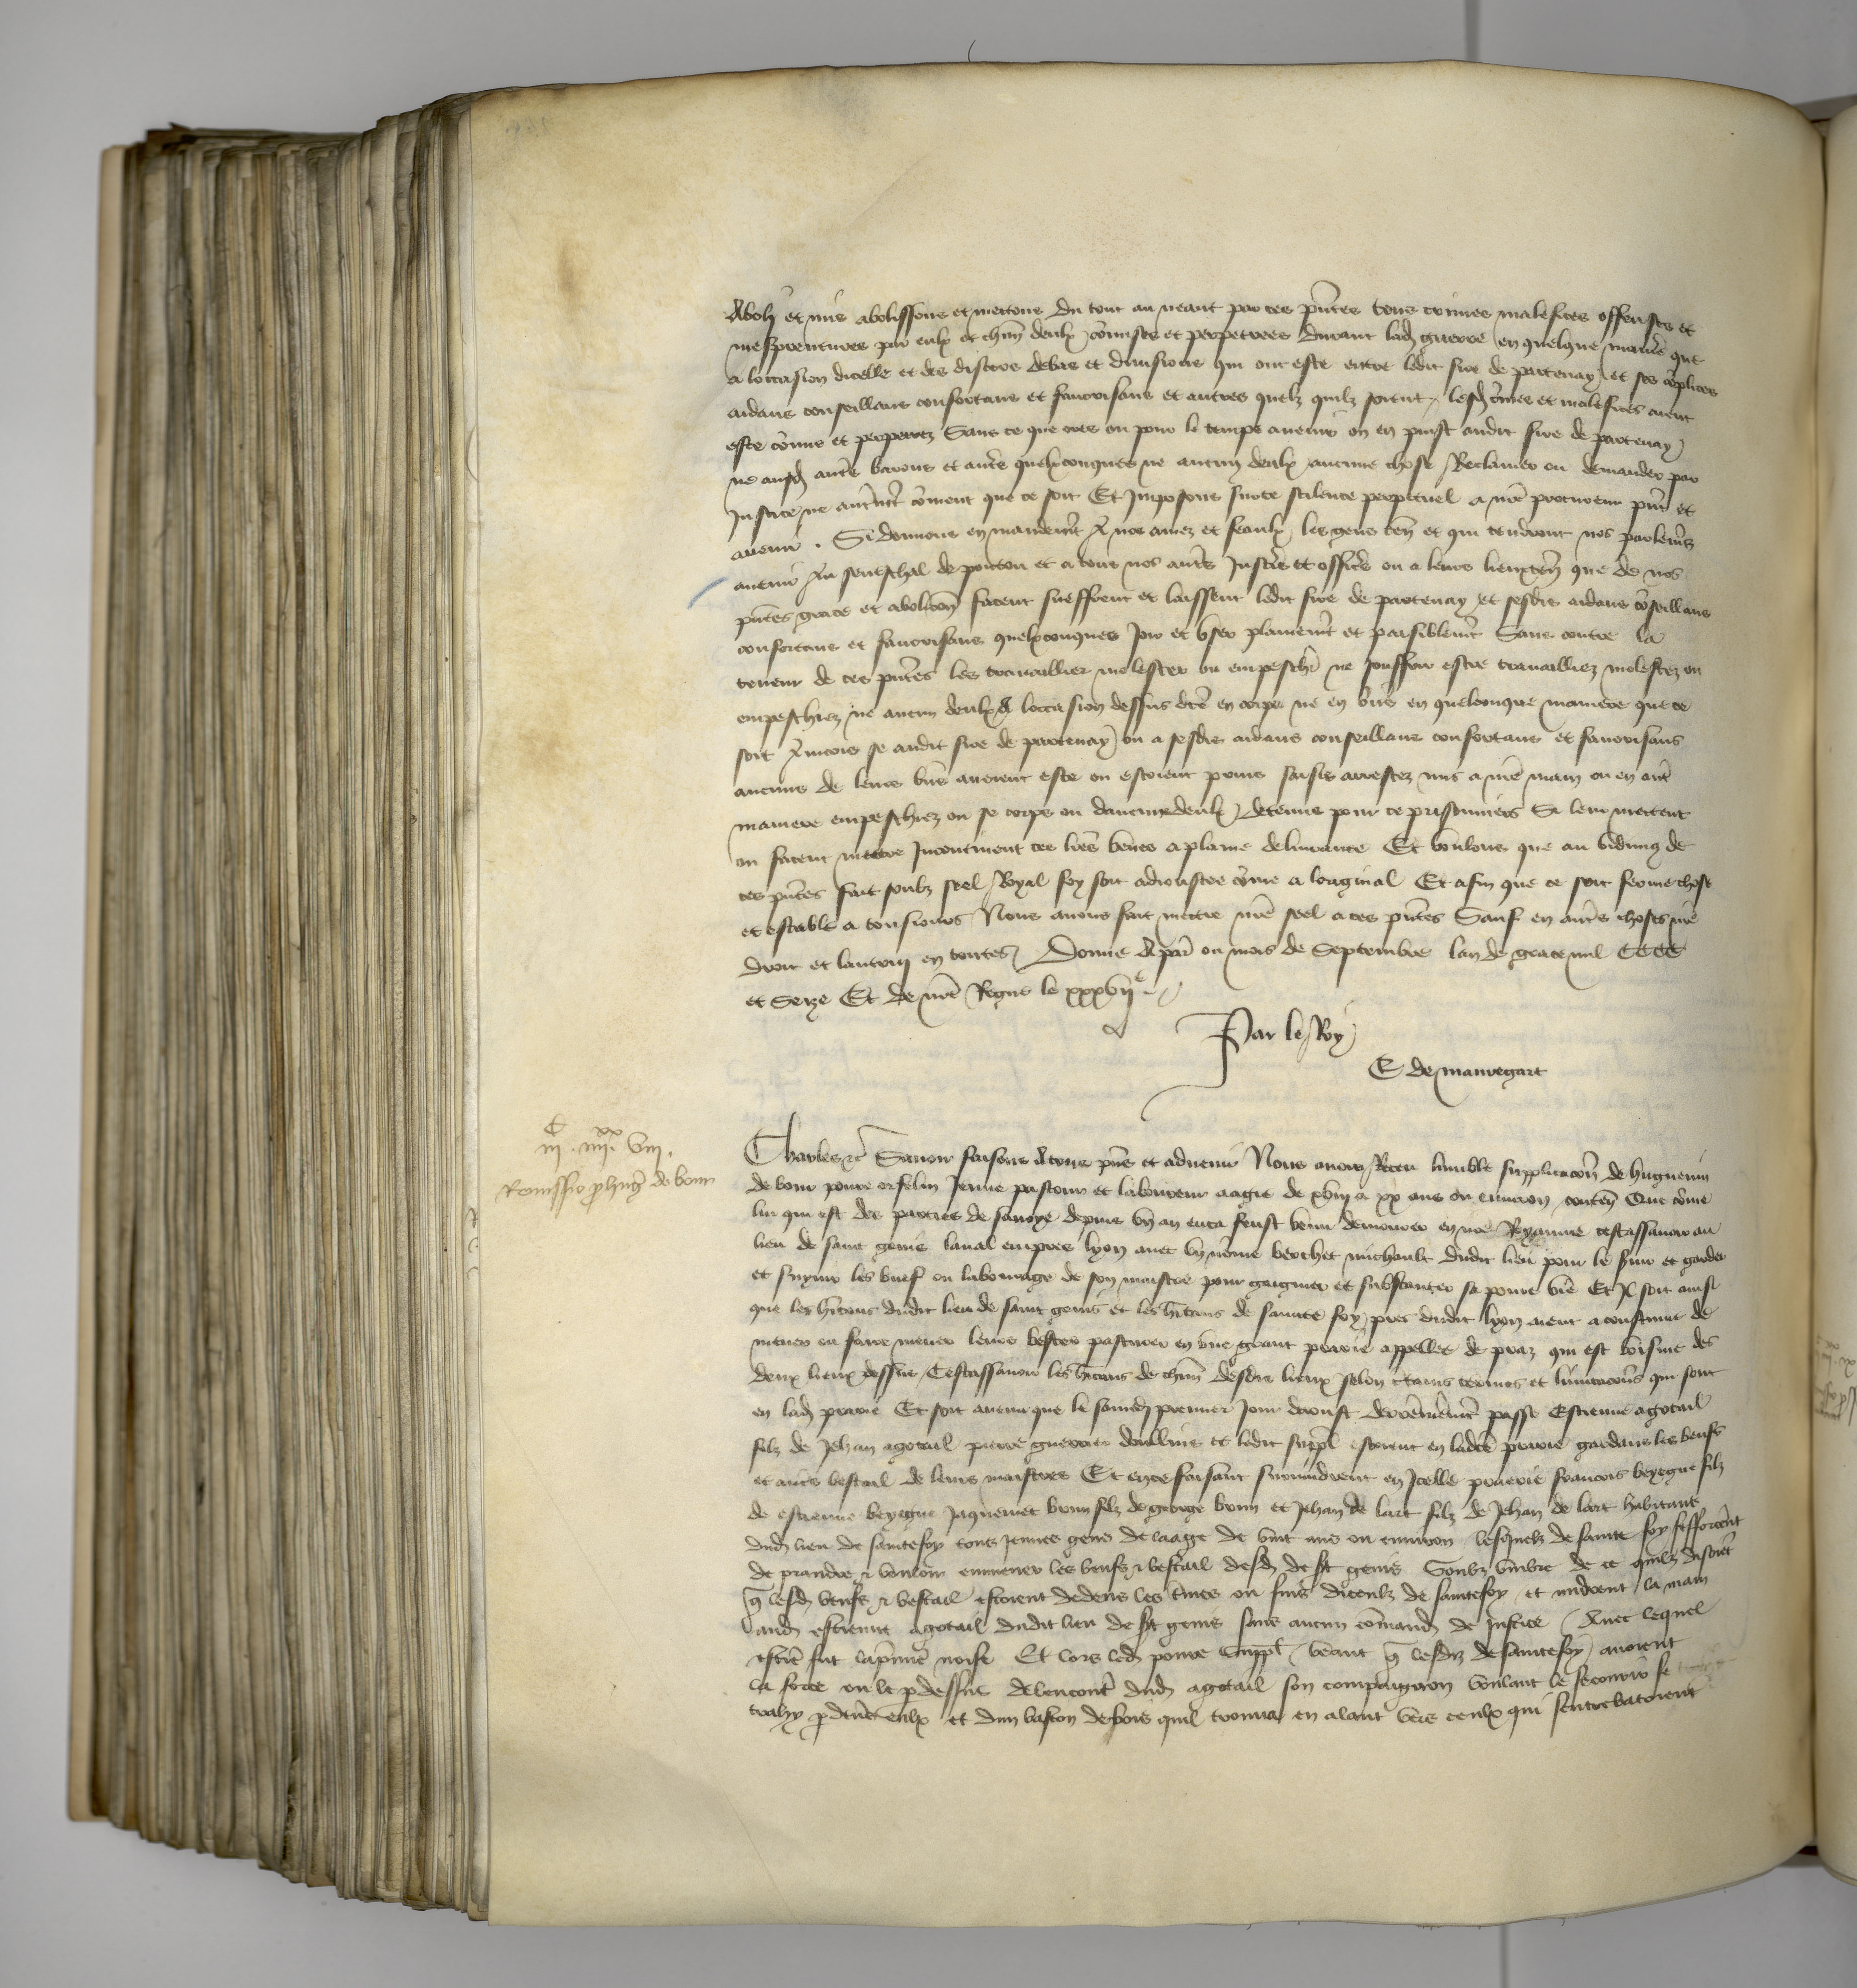 Aboly et mis abolissons et mettons du tout au neant par ces pñtes tous crimes malefices offenses et
mesprentures par eulx et chũn deulx cõmises et perpetrees durant lad guerre en quelque maniẽ que
a loccasion dicelle et des discors debas et divisions qui ont este entre ledit sire de partenay et ses cõplices
aidans conseillans confortans et favorisans et autres quelz quilz soient lesd c̃mes et malefices aient
este cõmis et perpetrez Sans ce que ores ou pour le temps avenir on en puist audit sire de partenay
ne ausd autr̃s barons et autr̃s quelxconques ne aucun deulx aucune chose Reclamer ou demander par
Justice ne autr̃mt cõment que ce soit Et Imposons surce scilence perpetuel a nr̃e procureur pñt et
avenir . Si donnons en mandem̃t A nos amez et feaulx les gens teñ et qui tendront nos parlem̃s
avenir Au seneschal de poitou et a tous nos autr̃s Justic̃s et offic̃s ou a leurs lieuxteñ que de nos
pñtes grace et abolicoñ facent sueffrent et laissent ledit sire de partenay et sesdis aidans cõseillans
confortans et favorisans quelxconques Joir et user plainem̃t et paisiblem̃t Sans contre la
teneur de ces pñtes les travaillier molester ou empeschr̃ ne souffrir estre travailliez molestez ou
empeschiez ne aucun deulx A loccasion dessus dc̃te en corps ne en biẽs en quelconque maniere que ce
soit Aincois se audit sire de partenay ou a sesdis aidans conseillans confortans et favorisans
aucuns de leurs bñs avoient este ou estoient prins saisis arrestez mis a nr̃e main ou en autr̃
maniere empeschiez ou se corps ou daucun deulx detenus pour ce prisonniers Si leur mettent
ou facent mettre Incontinent ces lr̃es veues a plaine delivrance Et voulons que au vidimus de
ces pñtes fait soubz seel Royal foy soit adjoustee cõme a loriginal Et afin que ce soit ferme chose
et estable a tousjours Nous avons fait mettre nr̃e seel a ces pñtes Sauf en autr̃s choses nr̃e
droit et lautruy en toutes Donne A par̃ ou mois de Septembre lan de grace mil CCCC
et Seize Et de nr̃e Regne le xxxvijᵉ
Par le Roy
E de mauregart
C xx
iij . iiij . viij .
Remissio p̱ hug̃ de bour
Charles &c̃ Savoir faisons A tous pñs et advenir Nous avoir Receu lumble supplicacoñ de huguenin
de bour povre orfelin Jeune pastour et laboureur aagie de xviij a xx ans ou environ conteñ Que cõme
lui qui est des parties de savoye depuis uñ an enca feust venu demourer en nr̃e Royaume cestassavoir au
lieu de saint genis laval empres lyon avec uñ nõme berchet michault dudit lieu pour le s̃vir et garder
et suyvir les buef ou labourage de son maistre pour gaignier et substanter sa povre vie Et Il soit ainsi
que les hĩtans dudit lieu de saint genis et les hĩtans de sainte foy pres dudit lyon aient acoustume de
mener ou faire mener leurs bestes pasturer en une grant prarie appellee de praz qui est voisine des
deux lieux dessus Cestassavoir les hĩtans de chũn desdis lieux selon c̃tains termes et limitacoñs qui sont
en lad prarie Et soit avenu que le samedi premier Jour daoust derrenierem̃t passe Estienne agotail
filz de Jehan agotail pierre guerrier doullins et ledit suppl̃ estoient en ladc̃te prarie gardans les beufs
et autr̃s bestail de leurs maistres Et en ce faisant survindrent en Icelle praerie francois beyegue filz
de estienne beyegue Jaquemet brun filz de george brun et Jehan de lart filz de Jehan de lart habitans
dud lieu de saintefoy tous Jeunes gens de laage de vint ans ou environ lesquelz de sainte foy sefforcer̃nt
de prandre & vouloir emmener les beufs & bestail desd de st genis Soubz umbre de ce quilz disoiẽt
q̃ lesd beufs & bestail estoient dedens les t̃mes ou fins diceulz de saintefoy et mirdrent la main
aud estienne agotail dudit lieu de st genis sans aucun cõmand de Justice Avec lequel
estiẽ fut la p̃mie noise Et lors led povre suppl̃ veant q̃ lesdiz de saintefoy avoient
la force ou le p̱dessus alencont̃ dud agotail son compaignon voulant le secourir se
trahy p̱ devers eulx et dun baston de bois quil trouva en alant vers ceulx qui sentrebatoient